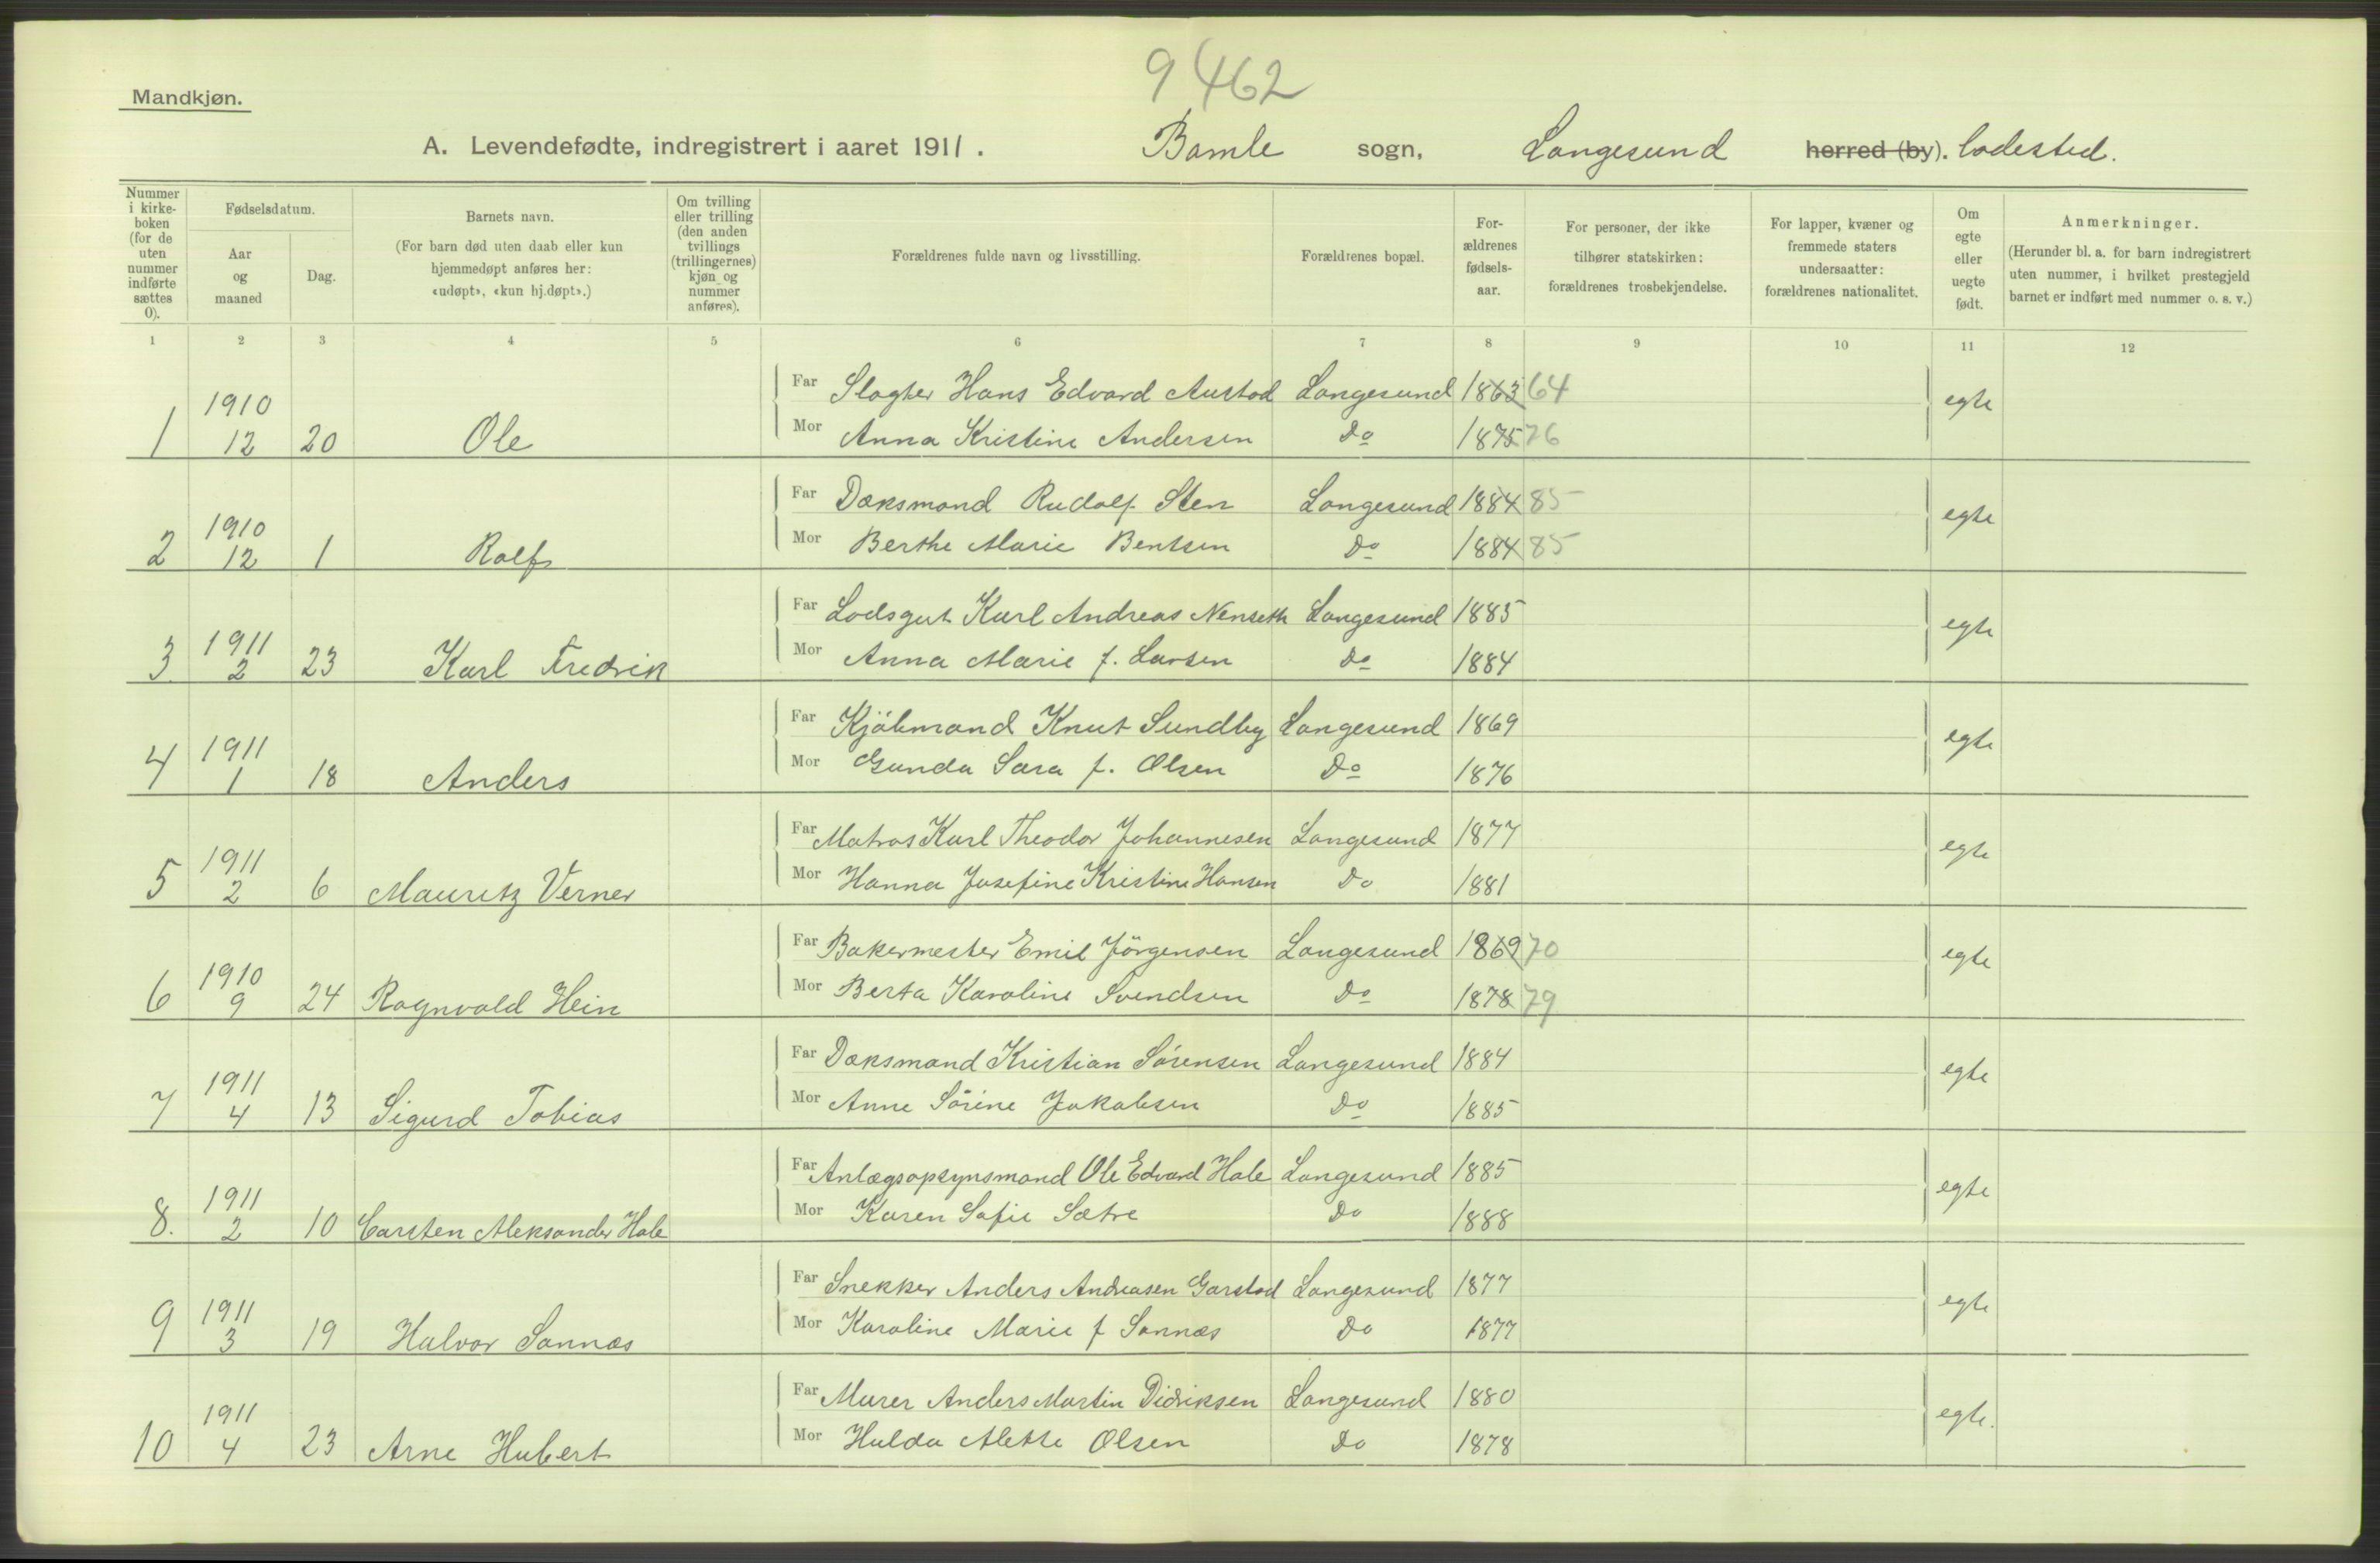 9 462
Mandkjøn.
A. Levendefødte, indregistrert i aaret 1911. Bamle sogn, Langesund herred (by). ladested.
Nummer i kirke-boken (for de uten nummer indførte sættes 0).
Fødselsdatum.
Aar og maaned
Dag.
Barnets navn.
(For barn død uten daab eller kun hjemmedøpt anføres her: «udøpt», «kun hj.døpt».)
Om tvilling eller trilling (den anden tvillings (trillingernes) kjøn og nummer anføres).
Forældrenes fulde navn og livsstilling.
Forældrenes bopæl.
For-ældrenes fødsels-aar.
For personer, der ikke tilhører statskirken: forældrenes trosbekjendelse.
For lapper, kvæner og fremmede staters undersaatter: forældrenes nationalitet.
Om egte eller uegte født.
Anmerkninger.
(Herunder bl. a. for barn indregistrert uten nummer, i hvilket prestegjeld barnet er indført med nummer o. s. v.)
1 2 3 4 5 6 7 8 9 10 11 12
Far Slagter Hans Edvard Austad Langesund 1863 64
1 1910 12 20 Ole egte
Mor Anna Kristine Andersen Do 1875 76
Far Dæksmand Rudolf Sten Langesund 1884 85
2 1910 12 1 Rolf egte
Mor Berthe Marie Bentsen Do 1884 85
Far Lodsgut Karl Andreas Nenseth Langesund 1885
3 1911 2 23 Karl Fredrik egte
Mor Anna Marie f. Larsen Do 1884
Far Kjøbmand Knut Sundby Langesund 1869
4 1911 1 18 Anders egte
Mor Gunda Sara f. Olsen Do 1876
Far Matros Karl Theodor Johannesen Langesund 1877
5 1911 2 6 Mauritz Verner egte
Mor Hanna Josefine Kristine Hansen Do 1881
Far Bakermester Emil Jörgensen Langesund 1869 70
6 1910 9 24 Ragnvald Hein egte
Mor Berta Karoline Svendsen Do 1878 79
Far Dæksmand Kristian Sörensen Langesund 1884
7 1911 4 13 Sigurd Tobias egte
Mor Anne Sörine Jakobsen Do 1885
Far Anlægsopsynsmand Ole Edvard Hole Langesund 1885
8. 1911 2 10 Carsten Aleksander Hole egte
Mor Karen Sofie Sætre Do 1888
Far Snekker Anders Andreasen Garstad Langesund 1877
9 1911 3 19 Halvor Sannæs egte
Mor Karoline Marie f Sannæs Do 1877
Far Murer Anders Martin Didriksen Langesund 1880
10 1911 4 23 Arne Hubert egte.
Mor Hulda Alette Olsen Do 1878